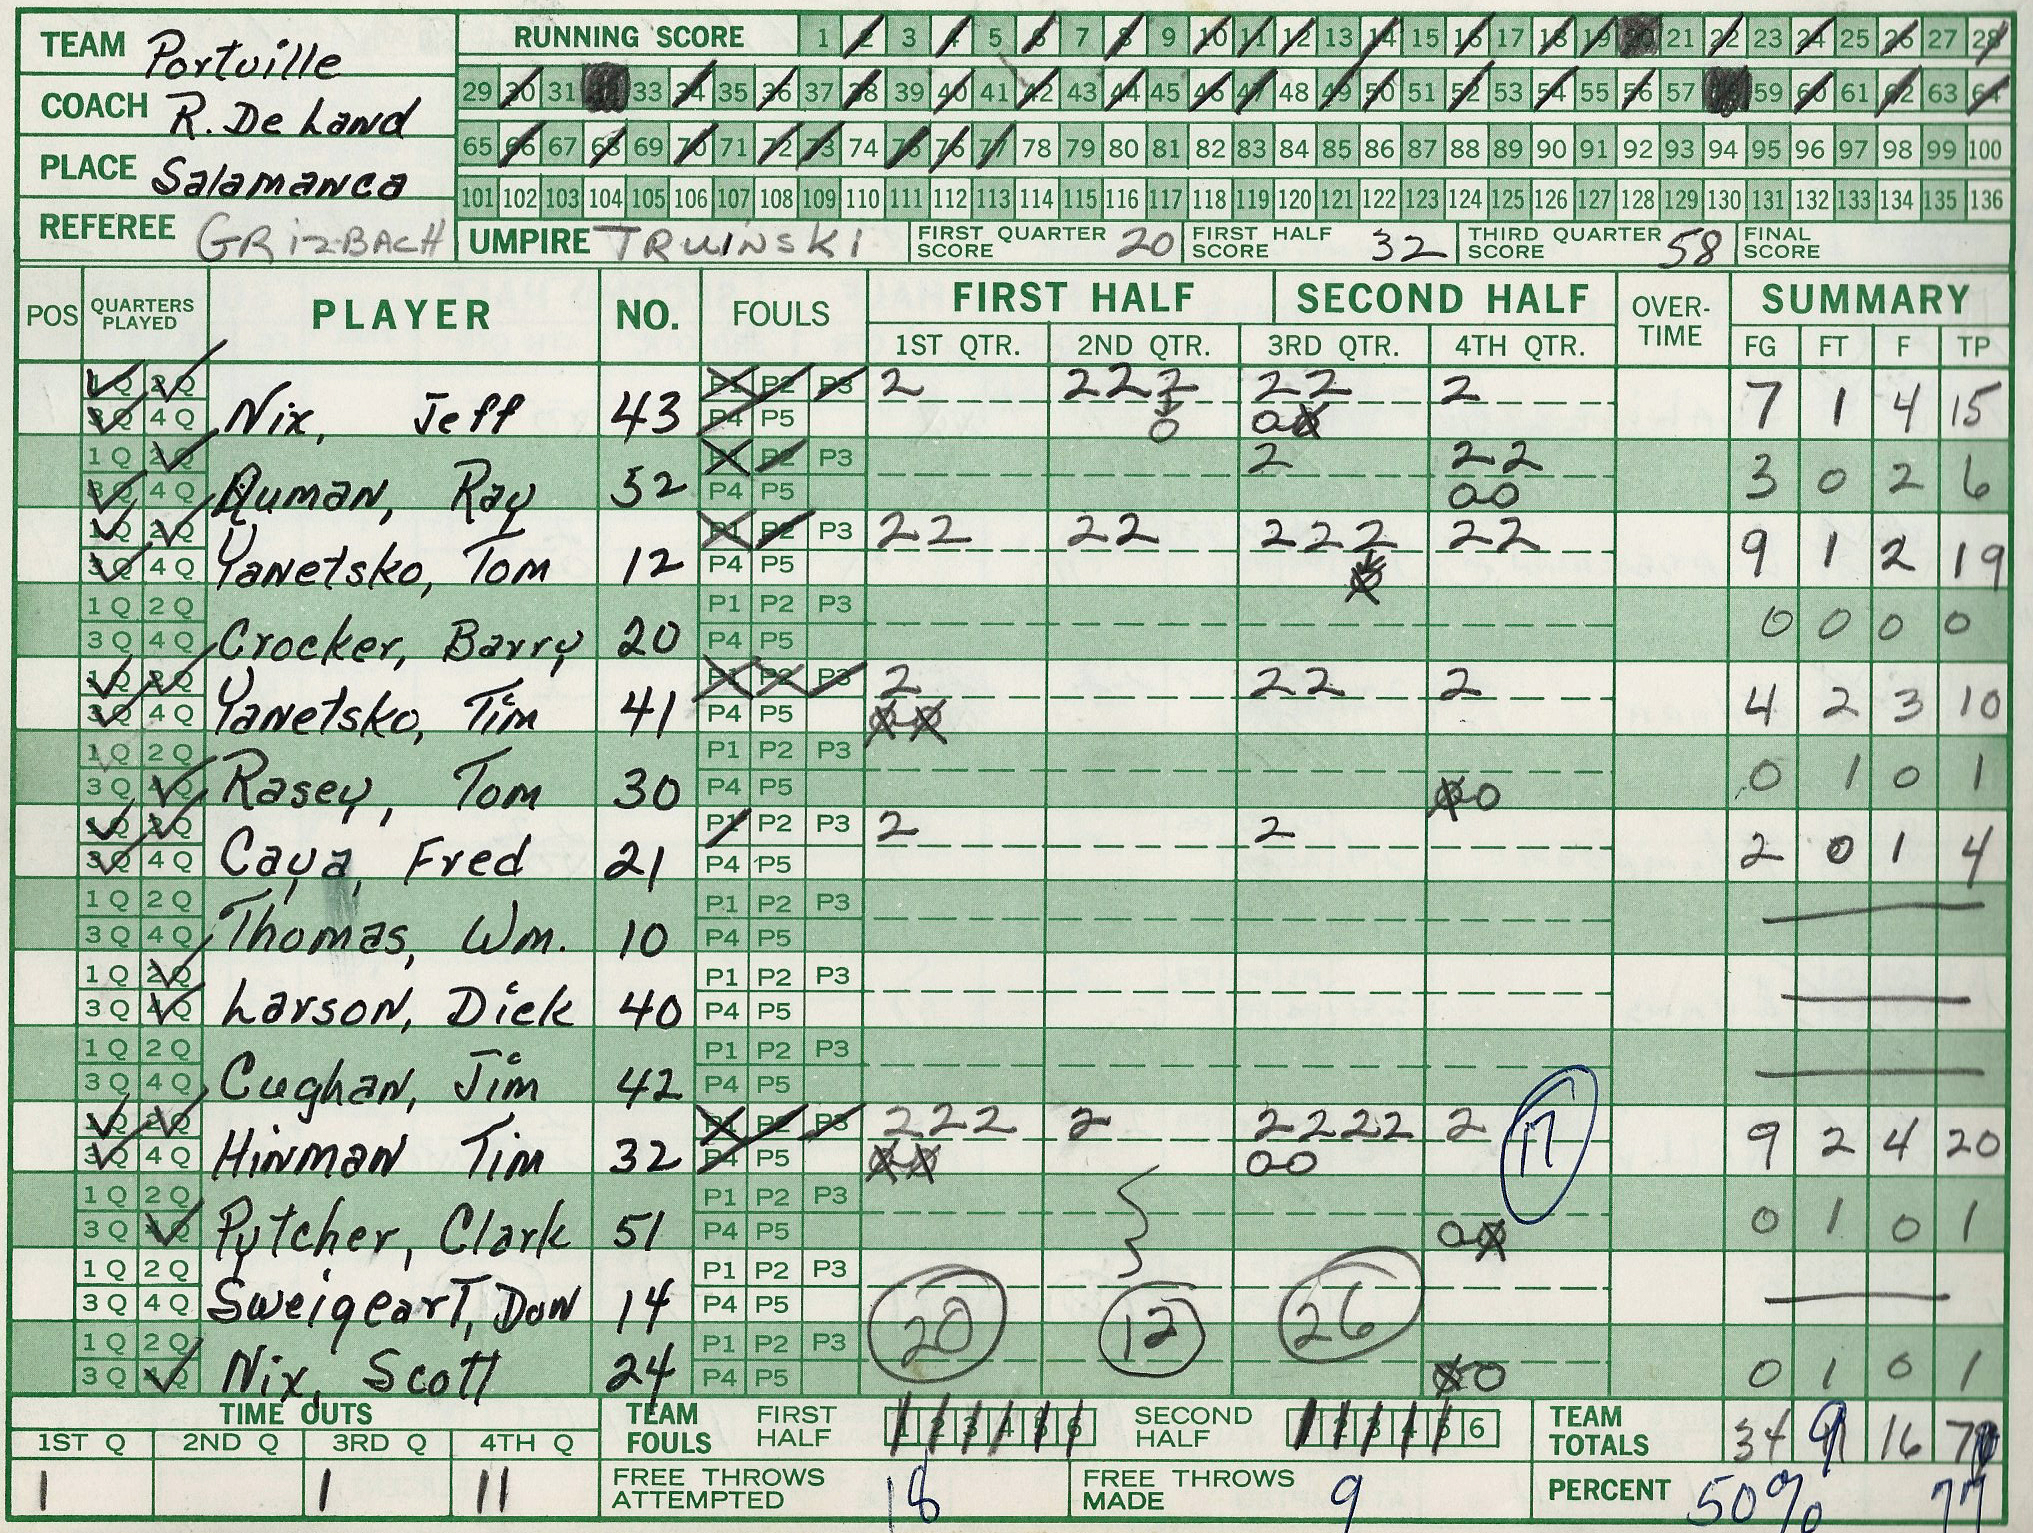 TEAM Portville RUNNING SCORE 1 2 3 4 5 6 7 8 9 10 11 12 13 14 15 16 17 18 19 20 21 22 23 24 25 26 27 28
COACH R. De Land 29 30 31 33 34 35 36 37 38 39 40 41 42 43 44 45 46 47 48 49 50 51 52 53 54 55 56 57 59 60 61 62 63 64
65 66 67 68 69 70 71 72 73 74 75 76 77 78 79 80 81 82 83 84 85 86 87 88 89 90 91 92 93 94 95 96 97 98 99 100
PLACE Salamanca 101 102 103 104 105 106 107 108 109 110 111 112 113 114 115 116 117 118 119 120 121 122 123 124 125 126 127 128 129 130 131 132 133 134 135 136
REFEREE GRIZBACH UMPIRE TRWINSKI FIRST QUARTER SCORE 20 FIRST HALF SCORE 32 THIRD QUARTER SCORE 58 FINAL SCORE
POS QUARTERS PLAYED PLAYER NO. FOULS FIRST HALF SECOND HALF OVER-TIME SUMMARY
1ST QTR. 2ND QTR. 3RD QTR. 4TH QTR. FG FT F TP
1Q 2Q P1 P2 P3 2 2 2 2 2 2 2
3Q 4Q Nix, Jeff 43 P4 P5 0 0 0 7 1 4 15
1Q 2Q P1 P2 P3 2 2 2
3Q 4Q Auman, Ray 52 P4 P5 0 0 3 0 2 6
1Q 2Q P1 P2 P3 2 2 2 2 2 2 2 2 2
3Q 4Q Yanetsko, Tom 12 P4 P5 0 9 1 2 19
1Q 2Q P1 P2 P3
3Q 4Q Crocker, Barry 20 P4 P5 0 0 0 0
1Q 2Q P1 P2 P3 2 2 2 2
3Q 4Q Yanetsko, Tim 41 P4 P5 0 0 4 2 3 10
1Q 2Q P1 P2 P3
3Q 4Q Rasey, Tom 30 P4 P5 0 0 0 1 0 1
1Q 2Q P1 P2 P3 2 2
3Q 4Q Caya, Fred 21 P4 P5 2 0 1 4
1Q 2Q P1 P2 P3
3Q 4Q Thomas, Wm. 10 P4 P5
1Q 2Q P1 P2 P3
3Q 4Q Larson, Dick 40 P4 P5
1Q 2Q P1 P2 P3
3Q 4Q Cughan, Jim 42 P4 P5
1Q 2Q P1 P2 P3 2 2 2 2 2 2 2 2 2 17
3Q 4Q Hinman Tim 32 P4 P5 0 0 0 0 9 2 4 20
1Q 2Q P1 P2 P3
3Q 4Q Pytcher, Clark 51 P4 P5 0 0 0 1 0 1
1Q 2Q P1 P2 P3
3Q 4Q Sweigeart, Don 14 P4 P5 20 12 26
1Q 2Q P1 P2 P3
3Q 4Q Nix, Scott 24 P4 P5 0 0 0 1 0 1
TIME OUTS TEAM FOULS FIRST HALF 1 2 3 4 5 6 SECOND HALF 1 2 3 4 5 6 TEAM TOTALS 34 9 16
1ST Q 2ND Q 3RD Q 4TH Q
1 1 11 FREE THROWS ATTEMPTED 18 FREE THROWS MADE 9 PERCENT 50% 77